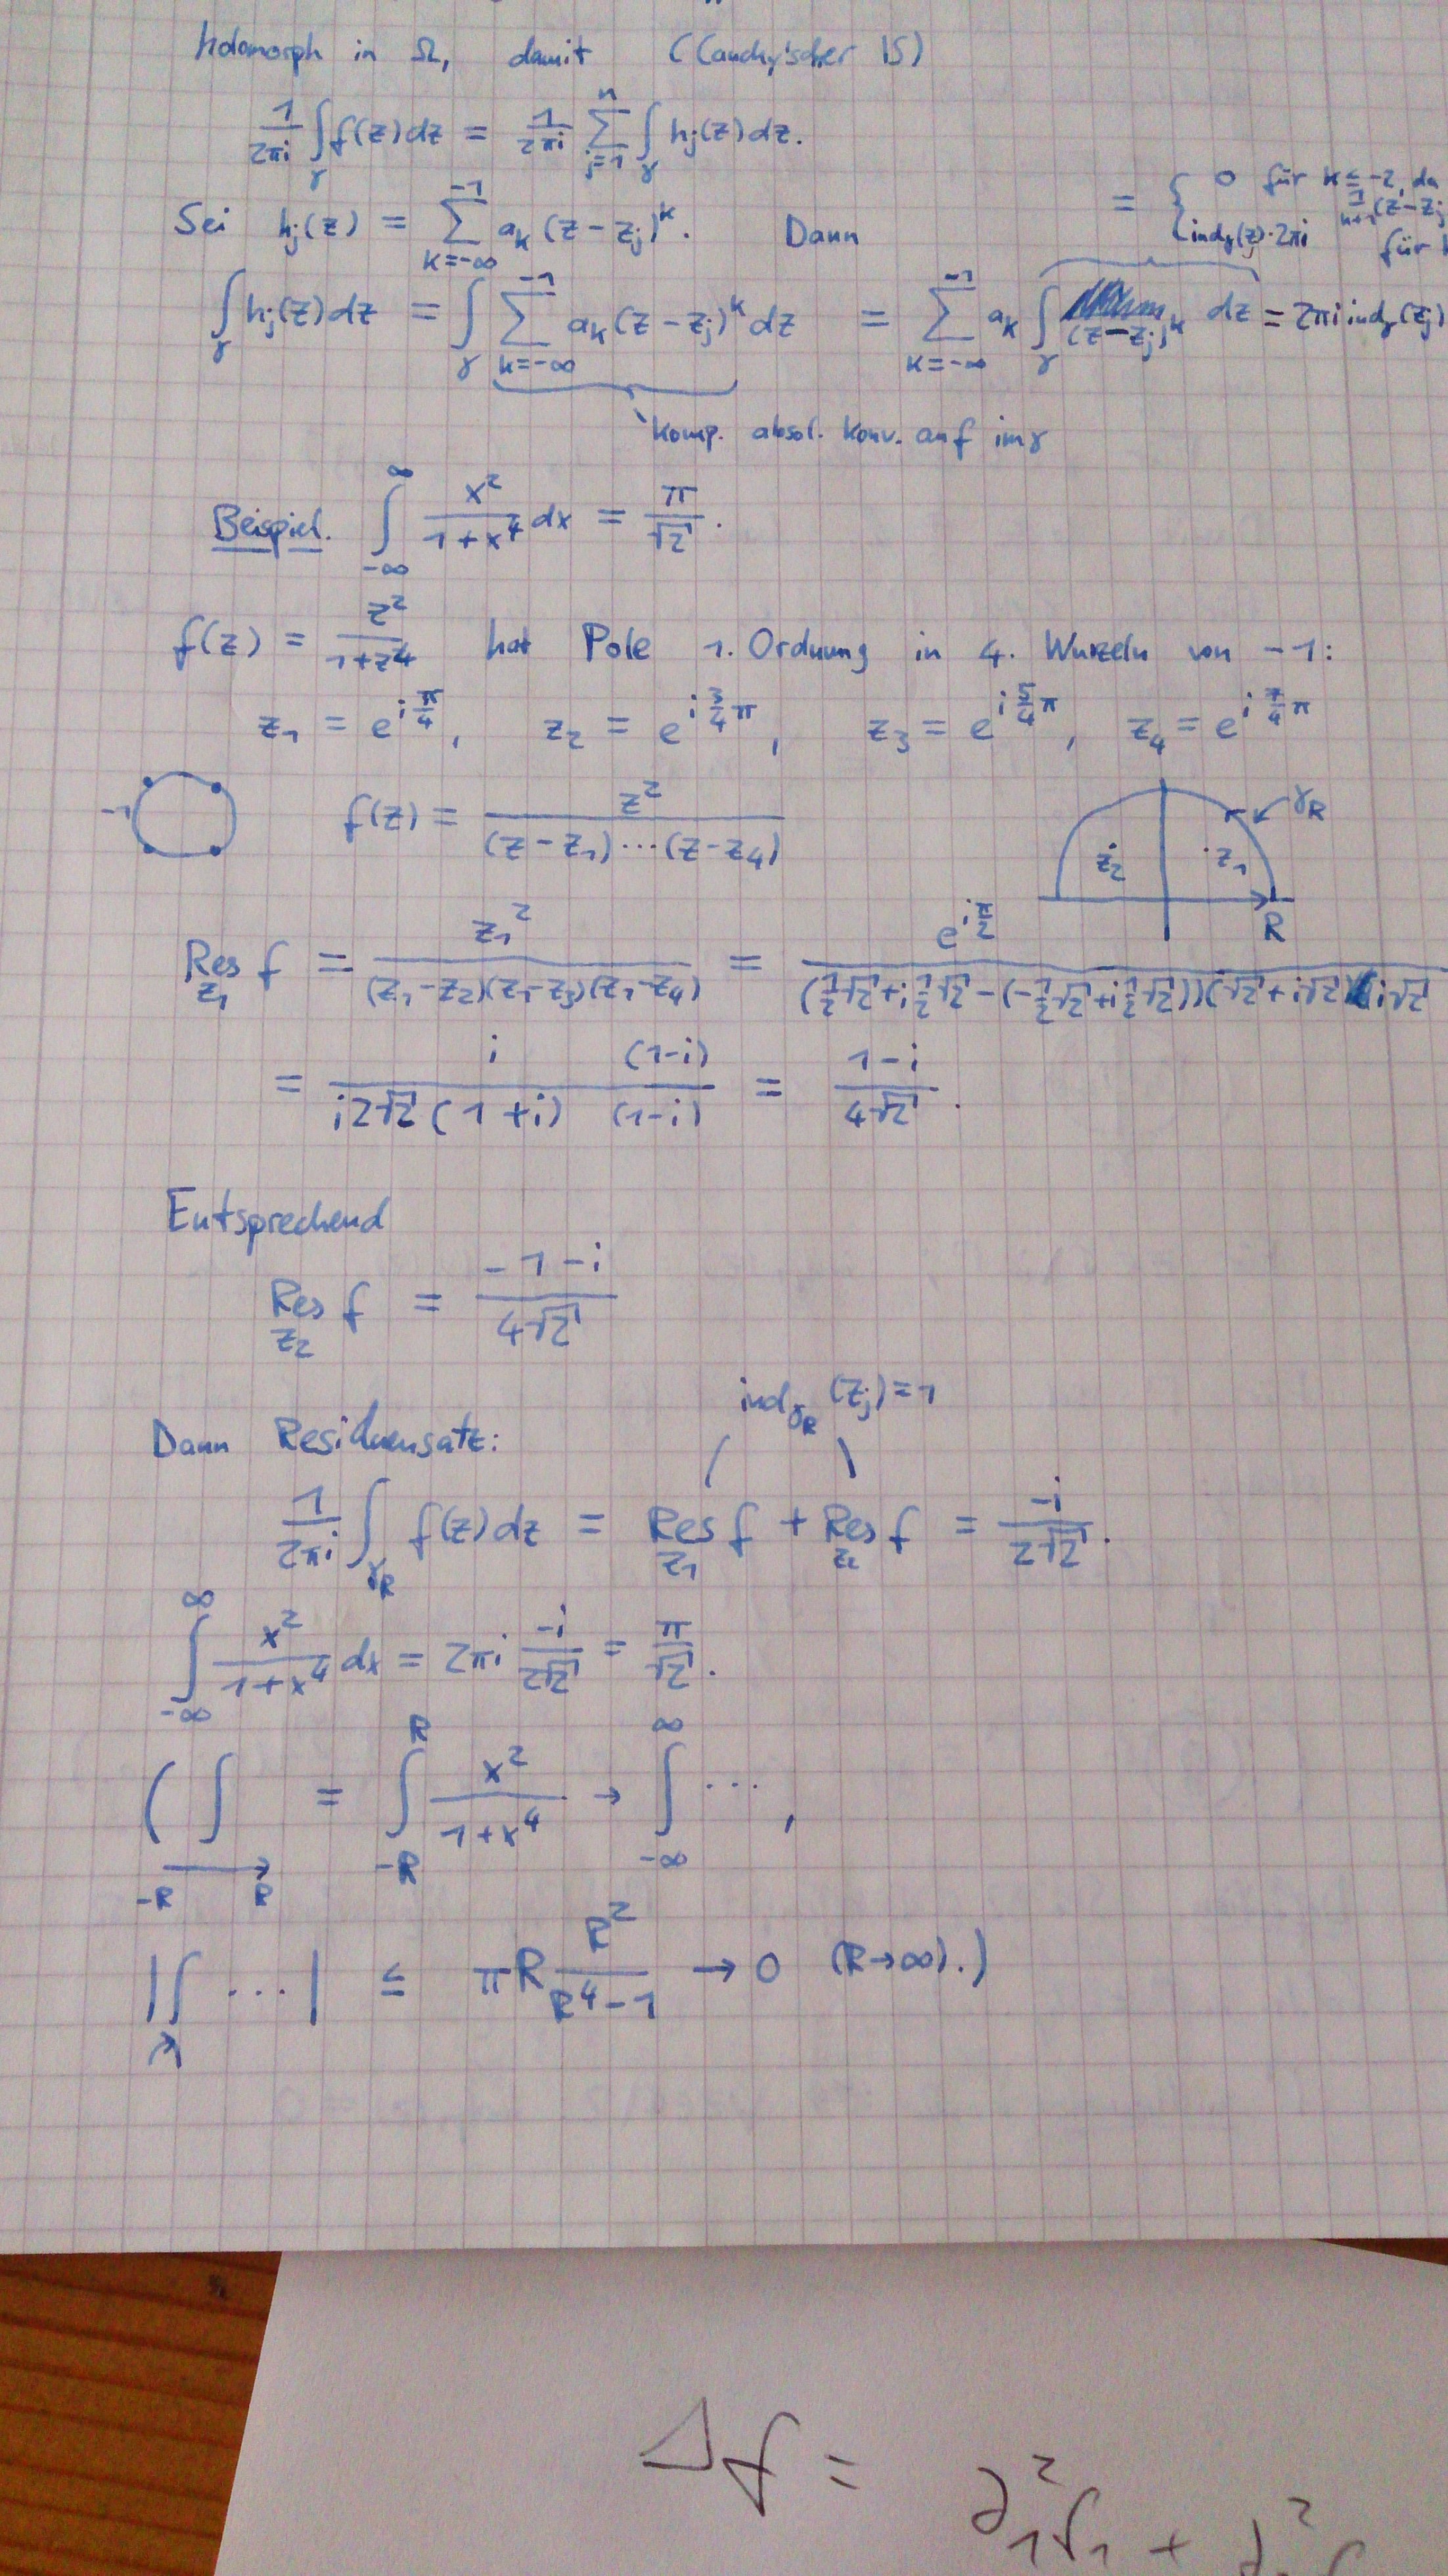 holomorph in Ω, damit (Cauchy'scher IS)
1/(2πi) ∫_γ f(z) dz = 1/(2πi) ∑_{j=1}^{n} ∫_γ h_j(z) dz.
= { 0 für k ≤ -2, da 1/(k+1) (z-z_j
ind_γ(z_j)·2πi für
Sei h_j(z) = ∑_{k=-∞}^{-1} a_k (z-z_j)^k. Dann
∫_γ h_j(z) dz = ∫_γ ∑_{k=-∞}^{-1} a_k (z-z_j)^k dz = ∑_{k=-∞}^{-1} a_k ∫_γ (z-z_j)^k dz = 2πi ind_γ(z_j)
komp. absol. konv. auf im γ
Beispiel. ∫_{-∞}^{∞} x²/(1+x⁴) dx = π/√2.
f(z) = z²/(1+z⁴) hat Pole 1. Ordnung in 4. Wurzeln von -1:
z₁ = e^{i π/4}, z₂ = e^{i 3/4 π}, z₃ = e^{i 5/4 π}, z₄ = e^{i 7/4 π}
-1 f(z) = z²/((z-z₁)⋯(z-z₄))
γ_R
z₂ z₁
R
Res_{z₁} f = z₁²/((z₁-z₂)(z₁-z₃)(z₁-z₄)) = e^{i π/2}/((1/2 √2 + i 1/2 √2 - (-1/2 √2 + i 1/2 √2))(√2 + i√2)(i√2
= i (1-i)/(i2√2 (1+i) (1-i)) = (1-i)/(4√2).
Entsprechend
Res_{z₂} f = (-1-i)/(4√2)
ind_{γ_R}(z_j) = 1
Dann Residuensatz:
1/(2πi) ∫_{γ_R} f(z) dz = Res_{z₁} f + Res_{z₂} f = -i/(2√2).
∫_{-∞}^{∞} x²/(1+x⁴) dx = 2πi -i/(2√2) = π/√2.
( ∫_{-R → R} = ∫_{-R}^{R} x²/(1+x⁴) → ∫_{-∞}^{∞} ⋯,
|∫_↷ ⋯| ≤ πR R²/(R⁴-1) → 0 (R→∞).)
Δf =
∂₁²f₁ +